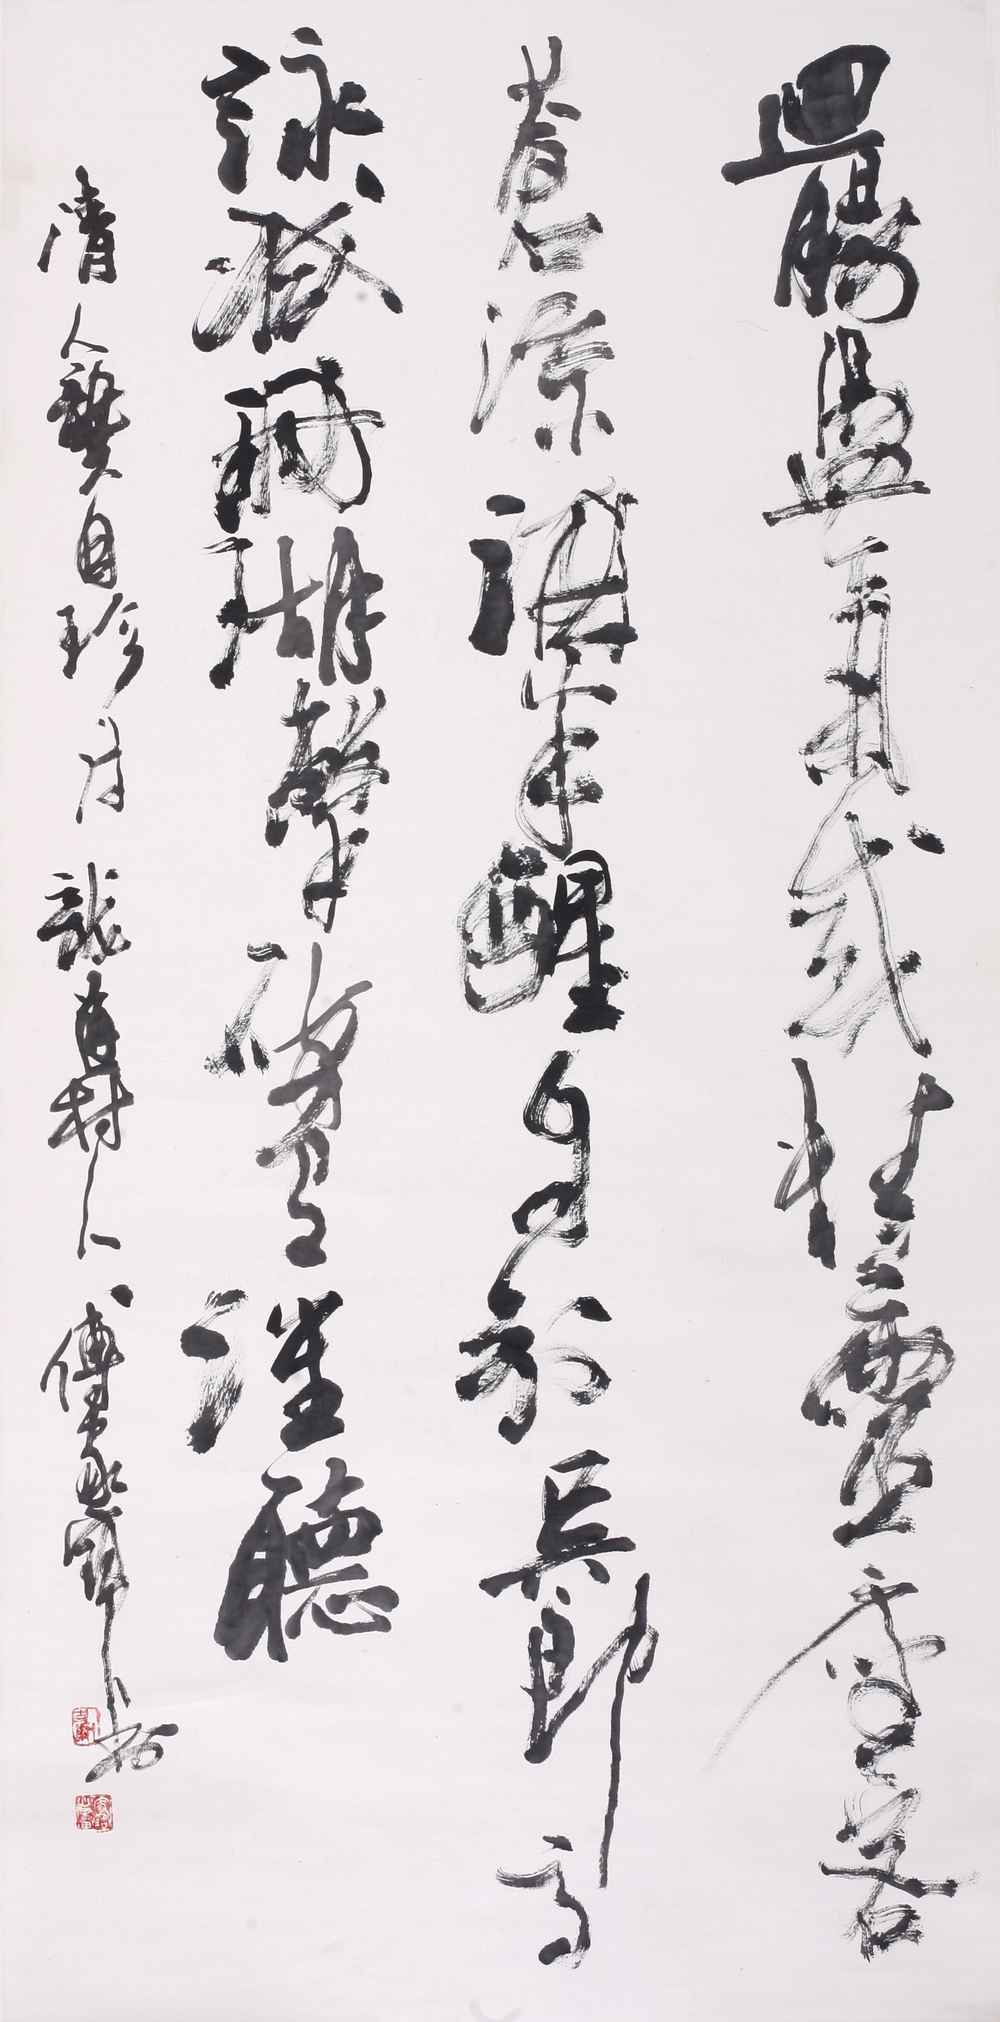 迴腸盪氣感精靈座客
蒼涼酒半醒自別吳郎高
詠減珊瑚擊碎有誰聽
清人龔自珍詩 村人傅家